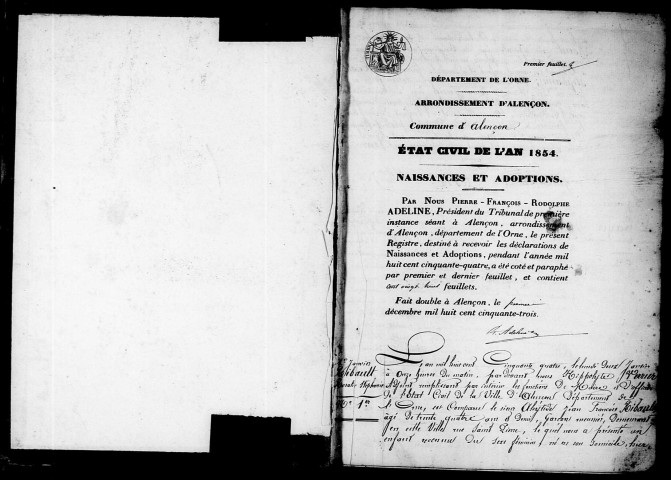 Premier feuillet.
DÉPARTEMENT DE L'ORNE.
ARRONDISSEMENT D'ALENÇON.
Commune d'Alençon
ÉTAT CIVIL DE L'AN 1854.
NAISSANCES ET ADOPTIONS.
PAR NOUS PIERRE-FRANÇOIS-RODOLPHE
ADELINE, Président du Tribunal de première
instance séant à Alençon, arrondissement
d'Alençon, département de l'Orne, le présent
Registre, destiné à recevoir les déclarations de
Naissances et Adoptions, pendant l'année mil
huit cent cinquante-quatre, a été coté et paraphé
par premier et dernier feuillet, et contient
cent vingt huit feuillets.
Fait double à Alençon, le premier
décembre mil huit cent cinquante-trois.
R. Adeline
L'an mil huit cent Cinquante quatre, le lundi Deux Janvier
à onze heures du matin, par devant nous Hippolyte
Adjoint remplissant par interim les fonctions de Maire et d'officier
de l'Etat Civil de la Ville d'Alençon Département de
l'Orne, est Comparu le sieur Jean François Thibault
âgé de trente quatre ans et demi, garçon meunier, Demeurant
en cette Ville rue Saint, lequel nous a présenté un
enfant reconnu du sexe féminin, né en son domicile, hier